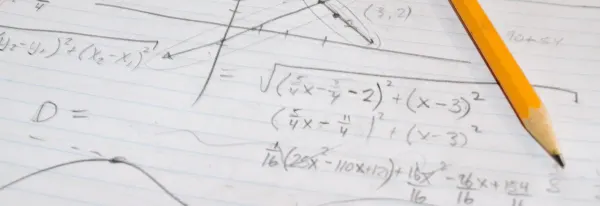 (3, 2)
y₂-y₁)²+(x₂-x₁)²
= √(5/4x-3/4-2)²+(x-3)²
D =
(5/4x-11/4)²+(x-3)²
1/16(25x²-110x+121)+16x²/16-96x/16+154